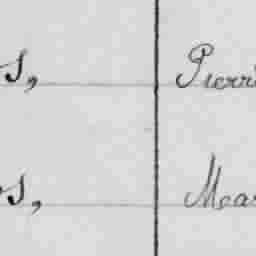 s, Pierr
s, Mar